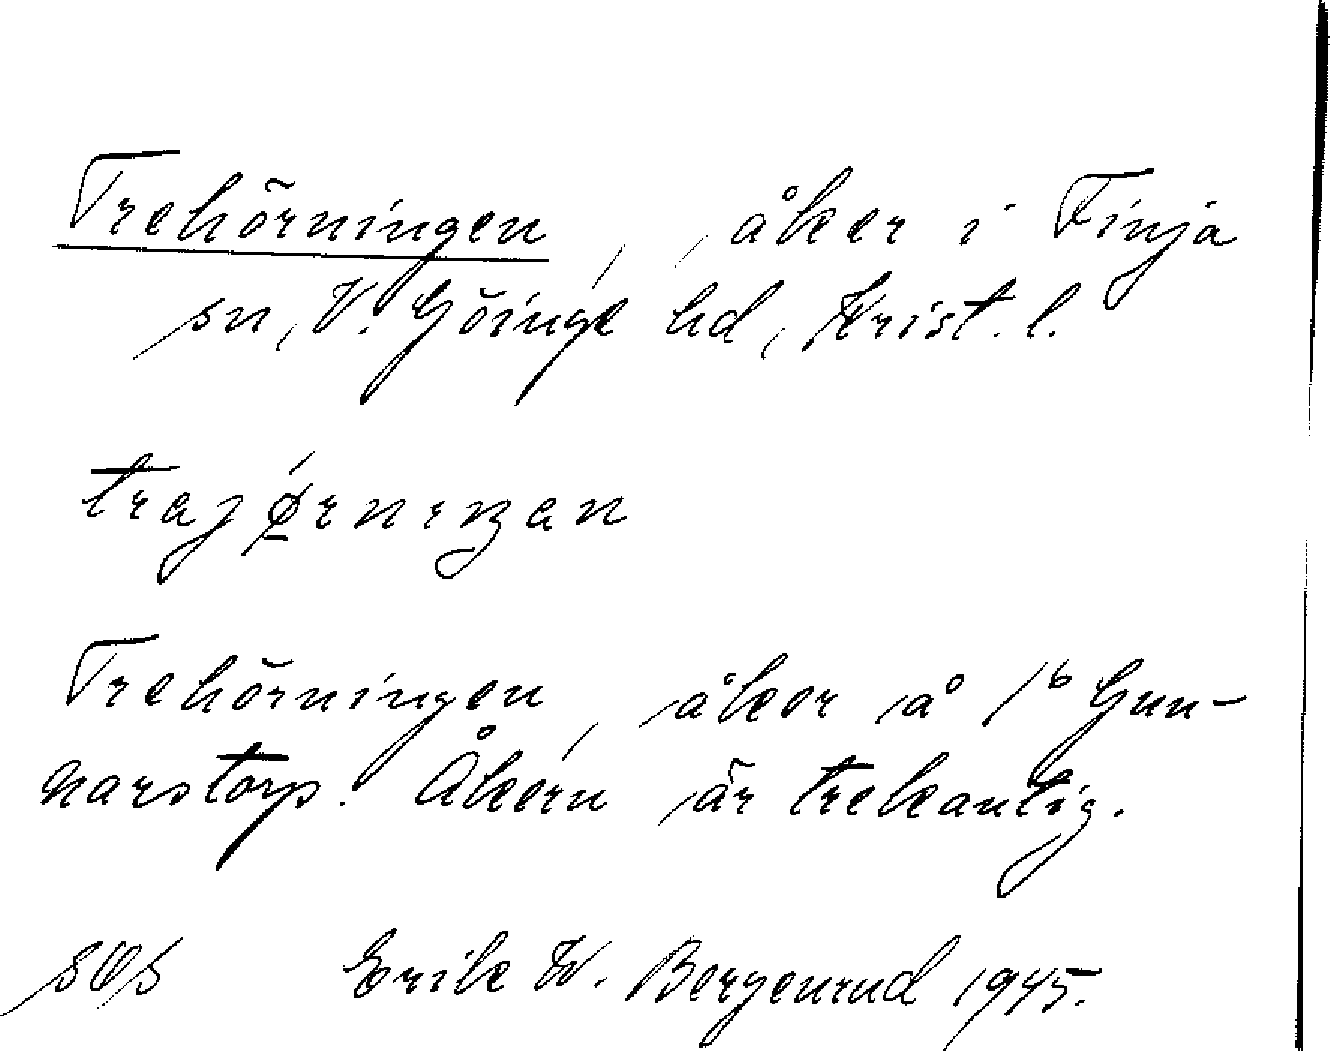 Trehörningen, åker i Finja
sn, V. Göinge hd, Krist. l.
Trehörningen, åker å 1⁶ Gun-
narstorp. Åkern är trekantig.
Erik W. Bergenrud 1945.